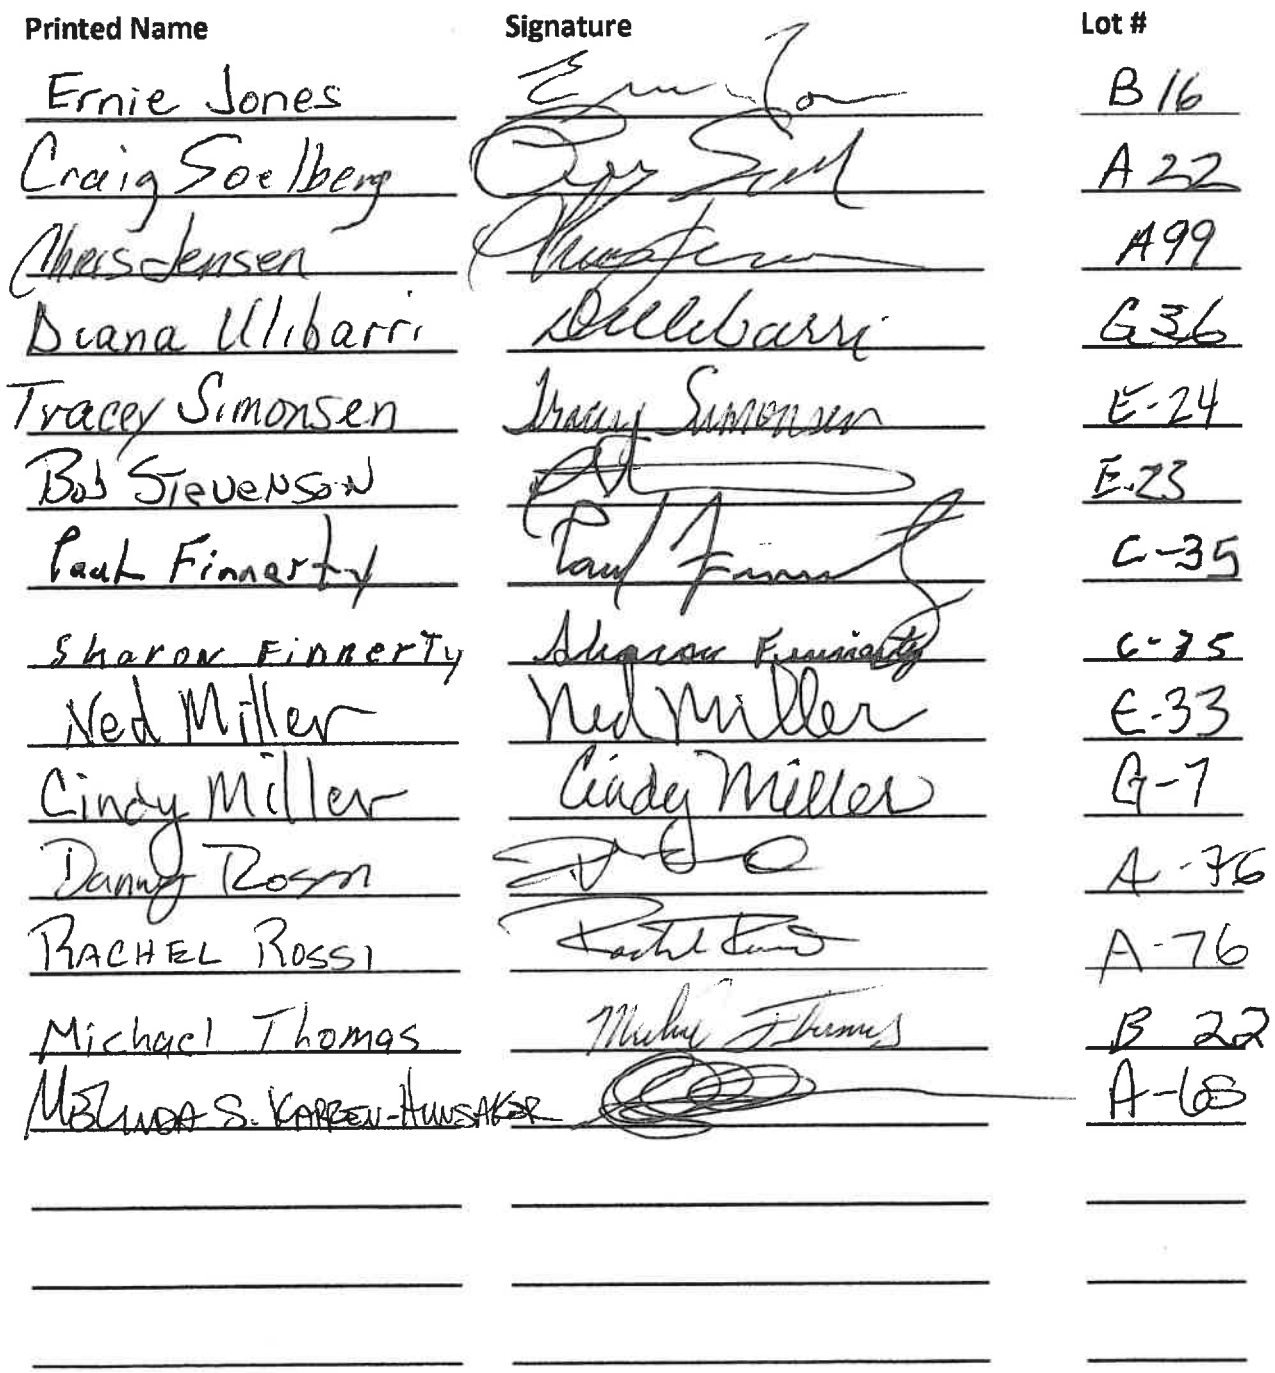 Printed Name Signature Lot #
Ernie Jones B 16
Craig Soelberg A 22
Chris Jensen A99
Diana Ulibarri DUlibarri G36
Tracey Simonsen Tracey Simonsen E-24
Bob Stevenson E-23
Paul Finnerty Paul C-35
Sharon Finnerty Sharon Finnerty C-35
Ned Miller Ned Miller E-33
Cindy Miller Cindy Miller G-7
Danny Rossi A-76
Rachel Rossi A-76
Michael Thomas B 22
Melinda S. Karren-Hunsaker A-68